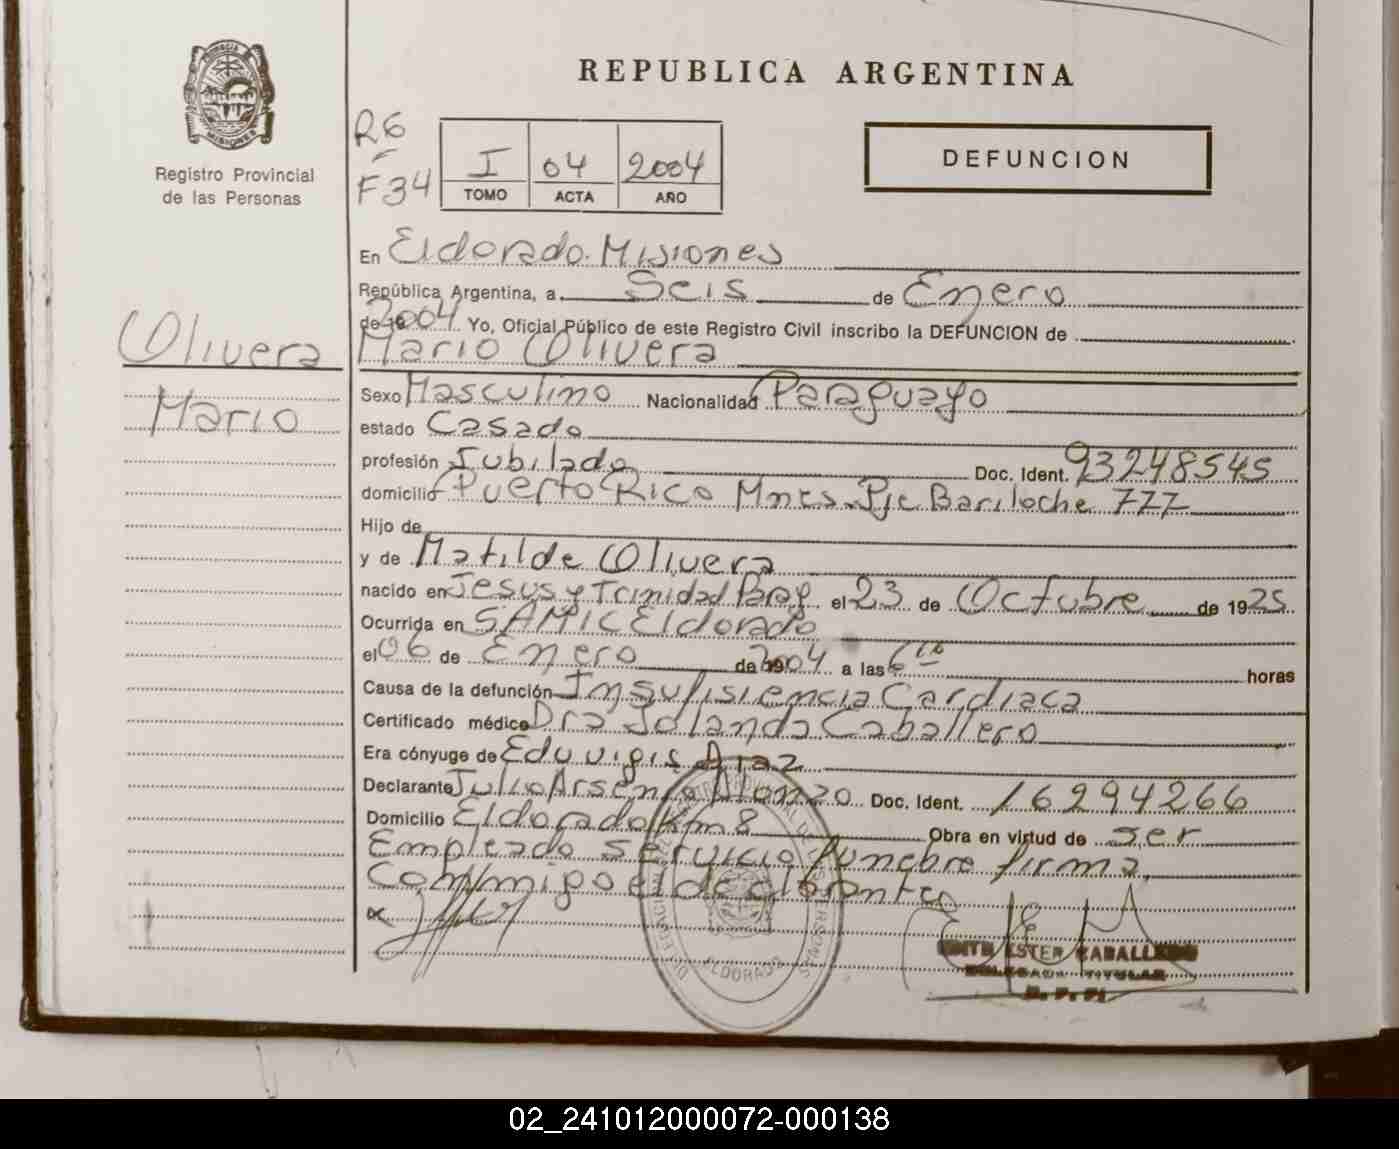 REPUBLICA ARGENTINA
Registro Provincial
de las Personas
R6
F34
I 04 2004
TOMO ACTA AÑO
DEFUNCION
En Eldorado Misiones
República Argentina, a Seis de Enero
de 2004 Yo, Oficial Público de este Registro Civil inscribo la DEFUNCION de
Mario Olivera
Olivera
Mario
Sexo Masculino Nacionalidad Paraguayo
estado Casado
profesión Jubilado Doc. Ident. 93248545
domicilio Puerto Rico Mnes. Pje Bariloche 777
Hijo de
y de Matilde Olivera
nacido en Jesus y Trinidad Parag el 23 de Octubre de 1925
Ocurrida en SAMIC Eldorado
el 06 de Enero de 2004 a las 6 horas
Causa de la defunción Insufisiencia Cardiaca
Certificado médico Dra Jolanda Caballero
Era cónyuge de Eduvigis Diaz
Declarante Julio Arsenio Alonzo Doc. Ident. 16294266
Domicilio Eldorado Km 8 Obra en virtud de ser
Empleado servicio funebre firma
Commigo el declarante
ELDORADO
EDITH ESTER CABALLERO
DELEGADA TITULAR
02_241012000072-000138